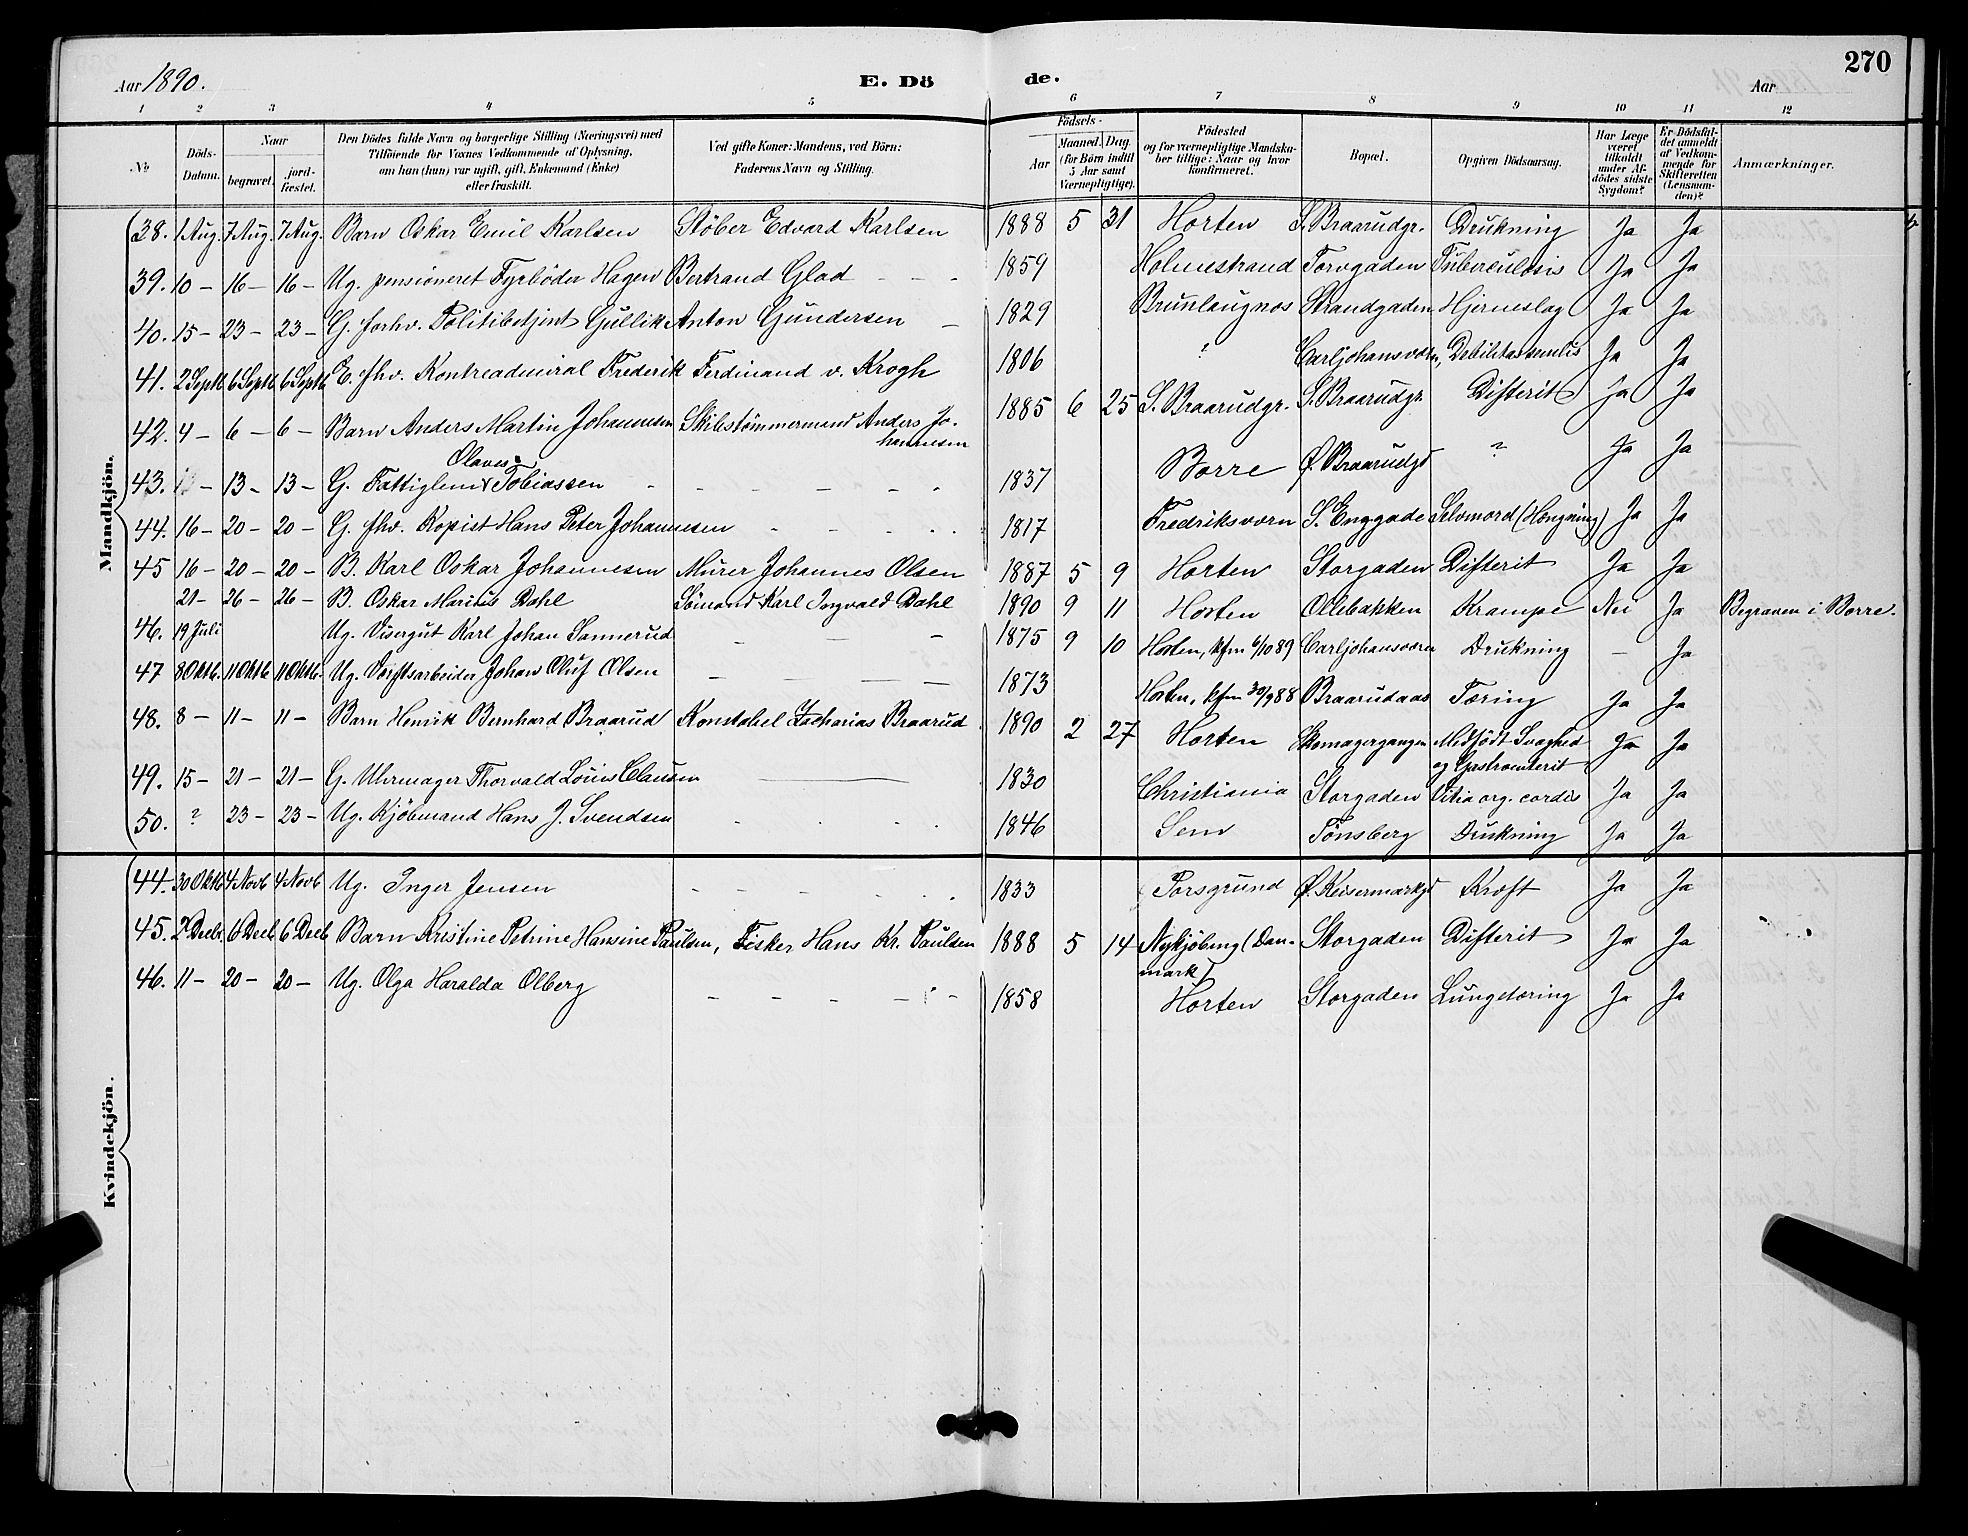 270
Aar 1890.
E. Dö
de.
Aar
1 2 3 4 5 6 7 8 9 10 11 12
No
Döds-Datum.
Naar
begravet.
jord-fæstet.
Den Dödes fulde Navn og borgerlige Stilling (Næringsvei) med
Tilföiende for Voxnes Vedkommende af Oplysning,
om han (hun) var ugift, gift, Enkemand (Enke)
eller fraskilt.
Ved gifte Koner: Mandens, ved Börn:
Faderens Navn og Stilling.
Födsels-
Aar
Maaned. Dag.
(for Börn indtil
5 Aar samt
Værnepligtige).
Födested
og for værnepligtige Mandska-
ber tillige: Naar og hvor
konfirmeret.
Bopæl.
Opgiven Dödsaarsag.
Har Læge
været
tilkaldt
under Af-
dödes sidste
Sygdom?
Er Dödsfal-
det anmeldt
af Vedkom-
mende for
Skifteretten
(Lensman-
den)?
Anmærkninger.
Mandkjön.
38. 1 Aug. 7 Aug. 7 Aug. Barn Oskar Emil Karlsen Støber Edvard Karlsen 1888 5 31 Horten S. Braarudgr. Drukning Ja Ja
39. 10 – 16 – 16 – Ug. pensioneret Fyrbøder Hagen Bertrand Glad 1859 Holmestrand Torvgaden Tuberculosis Ja Ja
40. 15 – 23 – 23 – G. forhv. Politibetjent Gullik Anton Gundersen – 1829 Brunlaugnæs Strandgaden Hjerneslag Ja Ja
41. 2 Septb 6 Septb 6 Septb E. fhv. Kontreadmiral Frederik Ferdinand v. Krogh 1806 ? Carljohansværn, Debilitas senilis Ja Ja
42. 4 – 6 – 6 – Barn Anders Martin Johannesen Skibstømmermand Anders Jo-
hannesen 1885 6 25 S. Braarudgr. S. Braarudgr. Difterit Ja Ja
Olaves
43. – 13 – 13 – G. Fattiglem Tobiassen 1837 Borre Ø. Braarudgd ? Ja Ja
44. 16 – 20 – 20 – G. fhv. Kopist Hans Peter Johannesen 1817 Fredriksværn S. Enggade Selvmord (Hængning) Ja Ja
45 16 – 20 – 20 – B. Karl Oskar Johannesen Murer Johannes Olsen 1887 5 9 Horten Storgaden Difterit Ja Ja
21 – 26 – 26 – B. Oskar Marius Dahl Sømand Karl Ingvald Dahl 1890 9 11 Horten Ollebakken Krampe Nei Ja Begraven i Borre.
46. 19 Juli Ug. Visergut Karl Johan Sannerud – – – 1875 9 10 Horten, kfm 6/10 89 Carljohansværn Drukning – Ja
47 8 Oktb. 11 Oktb. 11 Oktb. Ug. Værftsarbeider Johan Oluf Olsen – – – – 1873 Horten, kfm 30/9 88 Braarudaas Tæring Ja Ja
48. 8 – 11 – 11 – Barn Henrik Bernhard Braarud Konstabel Zacharias Braarud 1890 2 27 Horten Skomagergangen Medfødt Svaghed
og Gastroenterit Ja Ja
49. 15 – 21 – 21 – G. Uhrmager Thorvald Louis Clausen 1830 Christiania Storgaden Vitia org. cordis Ja Ja
50. ? 23 – 23 – Ug. Kjøbmand Hans J. Svendsen 1846 Sem Tønsberg Drukning Ja Ja
Kvindekjön.
44. 30 Oktb 4 Novb 4 Novb Ug. Inger Jensen 1833 Porsgrund Ø. Keisermarkgd Kræft Ja Ja
45. 2 Decb. 6 Decb 6 Decb Barn Kristine Petrine Hansine Paulsen, Fisker Hans Kr. Paulsen 1888 5 14 Nykjøbing (Dan-
mark) Storgaden Difterit Ja Ja
46. 11 – 20 – 20 – Ug. Olga Haralda Olberg 1858 Horten Storgaden Lungetæring Ja Ja